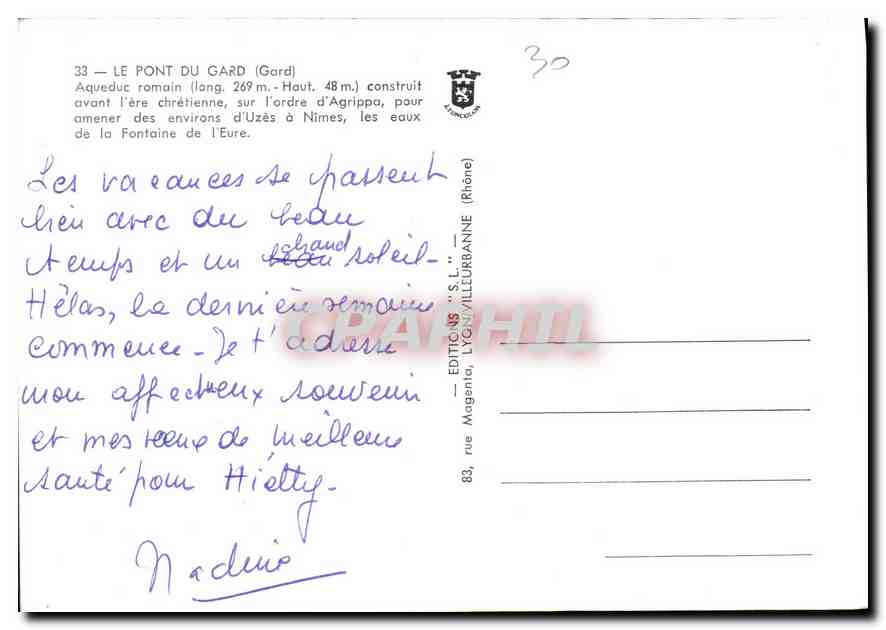 33 — LE PONT DU GARD (Gard)
Aqueduc romain (long. 269 m. - Haut. 48 m.) construit
avant l'ère chrétienne, sur l'ordre d'Agrippa, pour
amener des environs d'Uzès à Nîmes, les eaux
de la Fontaine de l'Eure.
30
Les vacances se passent
bien avec du beau
temps et un beau chaud soleil -
Hélas, la dernière semaine
commence - Je t'adresse
mon affectueux souvenir
et mes vœux de meilleure
santé pour
Nadine
— EDITIONS "S.L." —
83, rue Magenta, LYON/VILLEURBANNE (Rhône)
CPAPHIL